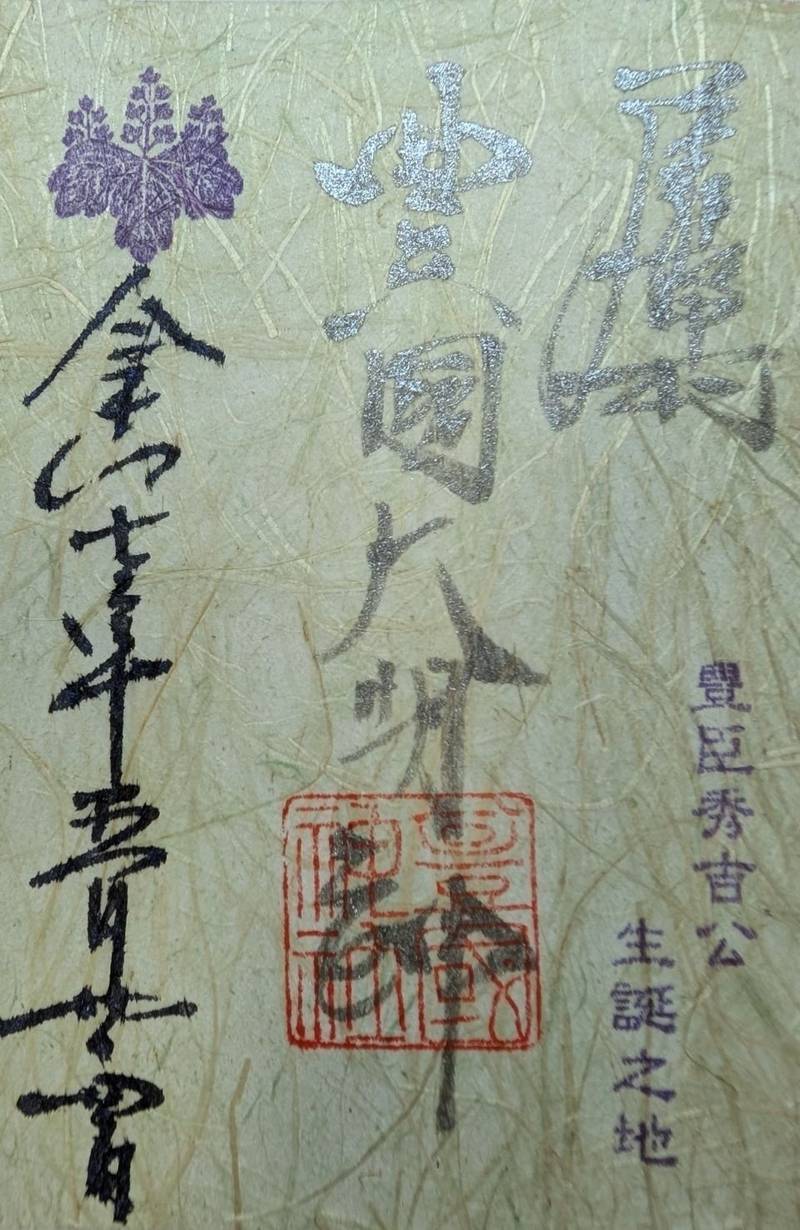 豊國大明神
豊國神社
豊臣秀吉公
生誕之地
令和七年五月廿四日